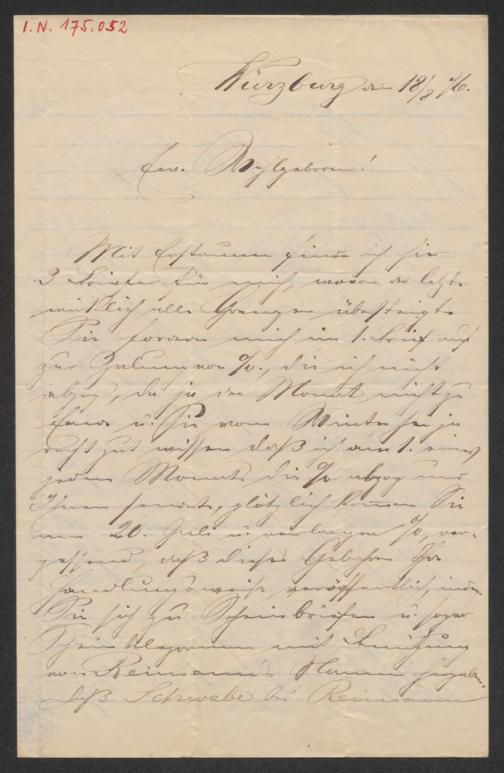 I.N. 175.052
Würzburg den 18/8 76.
Euer Wohlgeboren!
Mit Erstaunen finde ich hier
3 Briefe für mich, wovon der letzte
wirklich alle Grenzen übersteigt.
Sie fordern mich im 1. Brief auf
zur Zahlung von %, die ich nicht
abzog, da ja der Monat nicht zu
Ende u. Sie vom Winter her ja
recht gut wissen daß ich am 1. eines
jeden Monats die % abzog und
Ihnen sendete, plötzlich kommen Sie
am 20. Juli u. verlangen %, ver-
gessend, daß dieses Gebahren Ihre
Handlungsweise veröffentlicht, indem
Sie sich zu Scheinbriefen u. sogar
Schein Telegramm mit Benützung
von Reimann's Namen hergeben.
Daß Schwabe bei Reimann